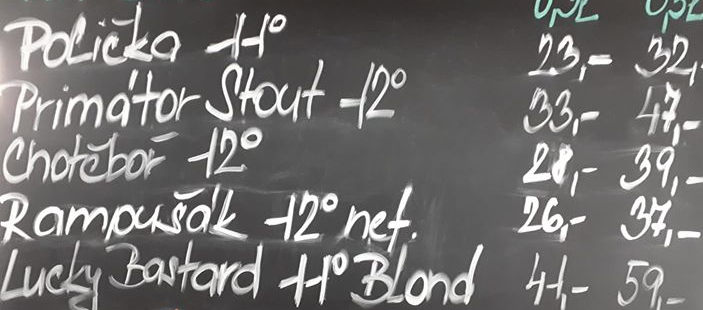 0,3L 0,5L
Polička 11° 23,- 32,-
Primátor Stout 12° 33,- 47,-
Chotěboř 12° 28,- 39,-
Rampušák 12° nef. 26,- 37,-
Lucky Bastard 11° Blond 41,- 59,-